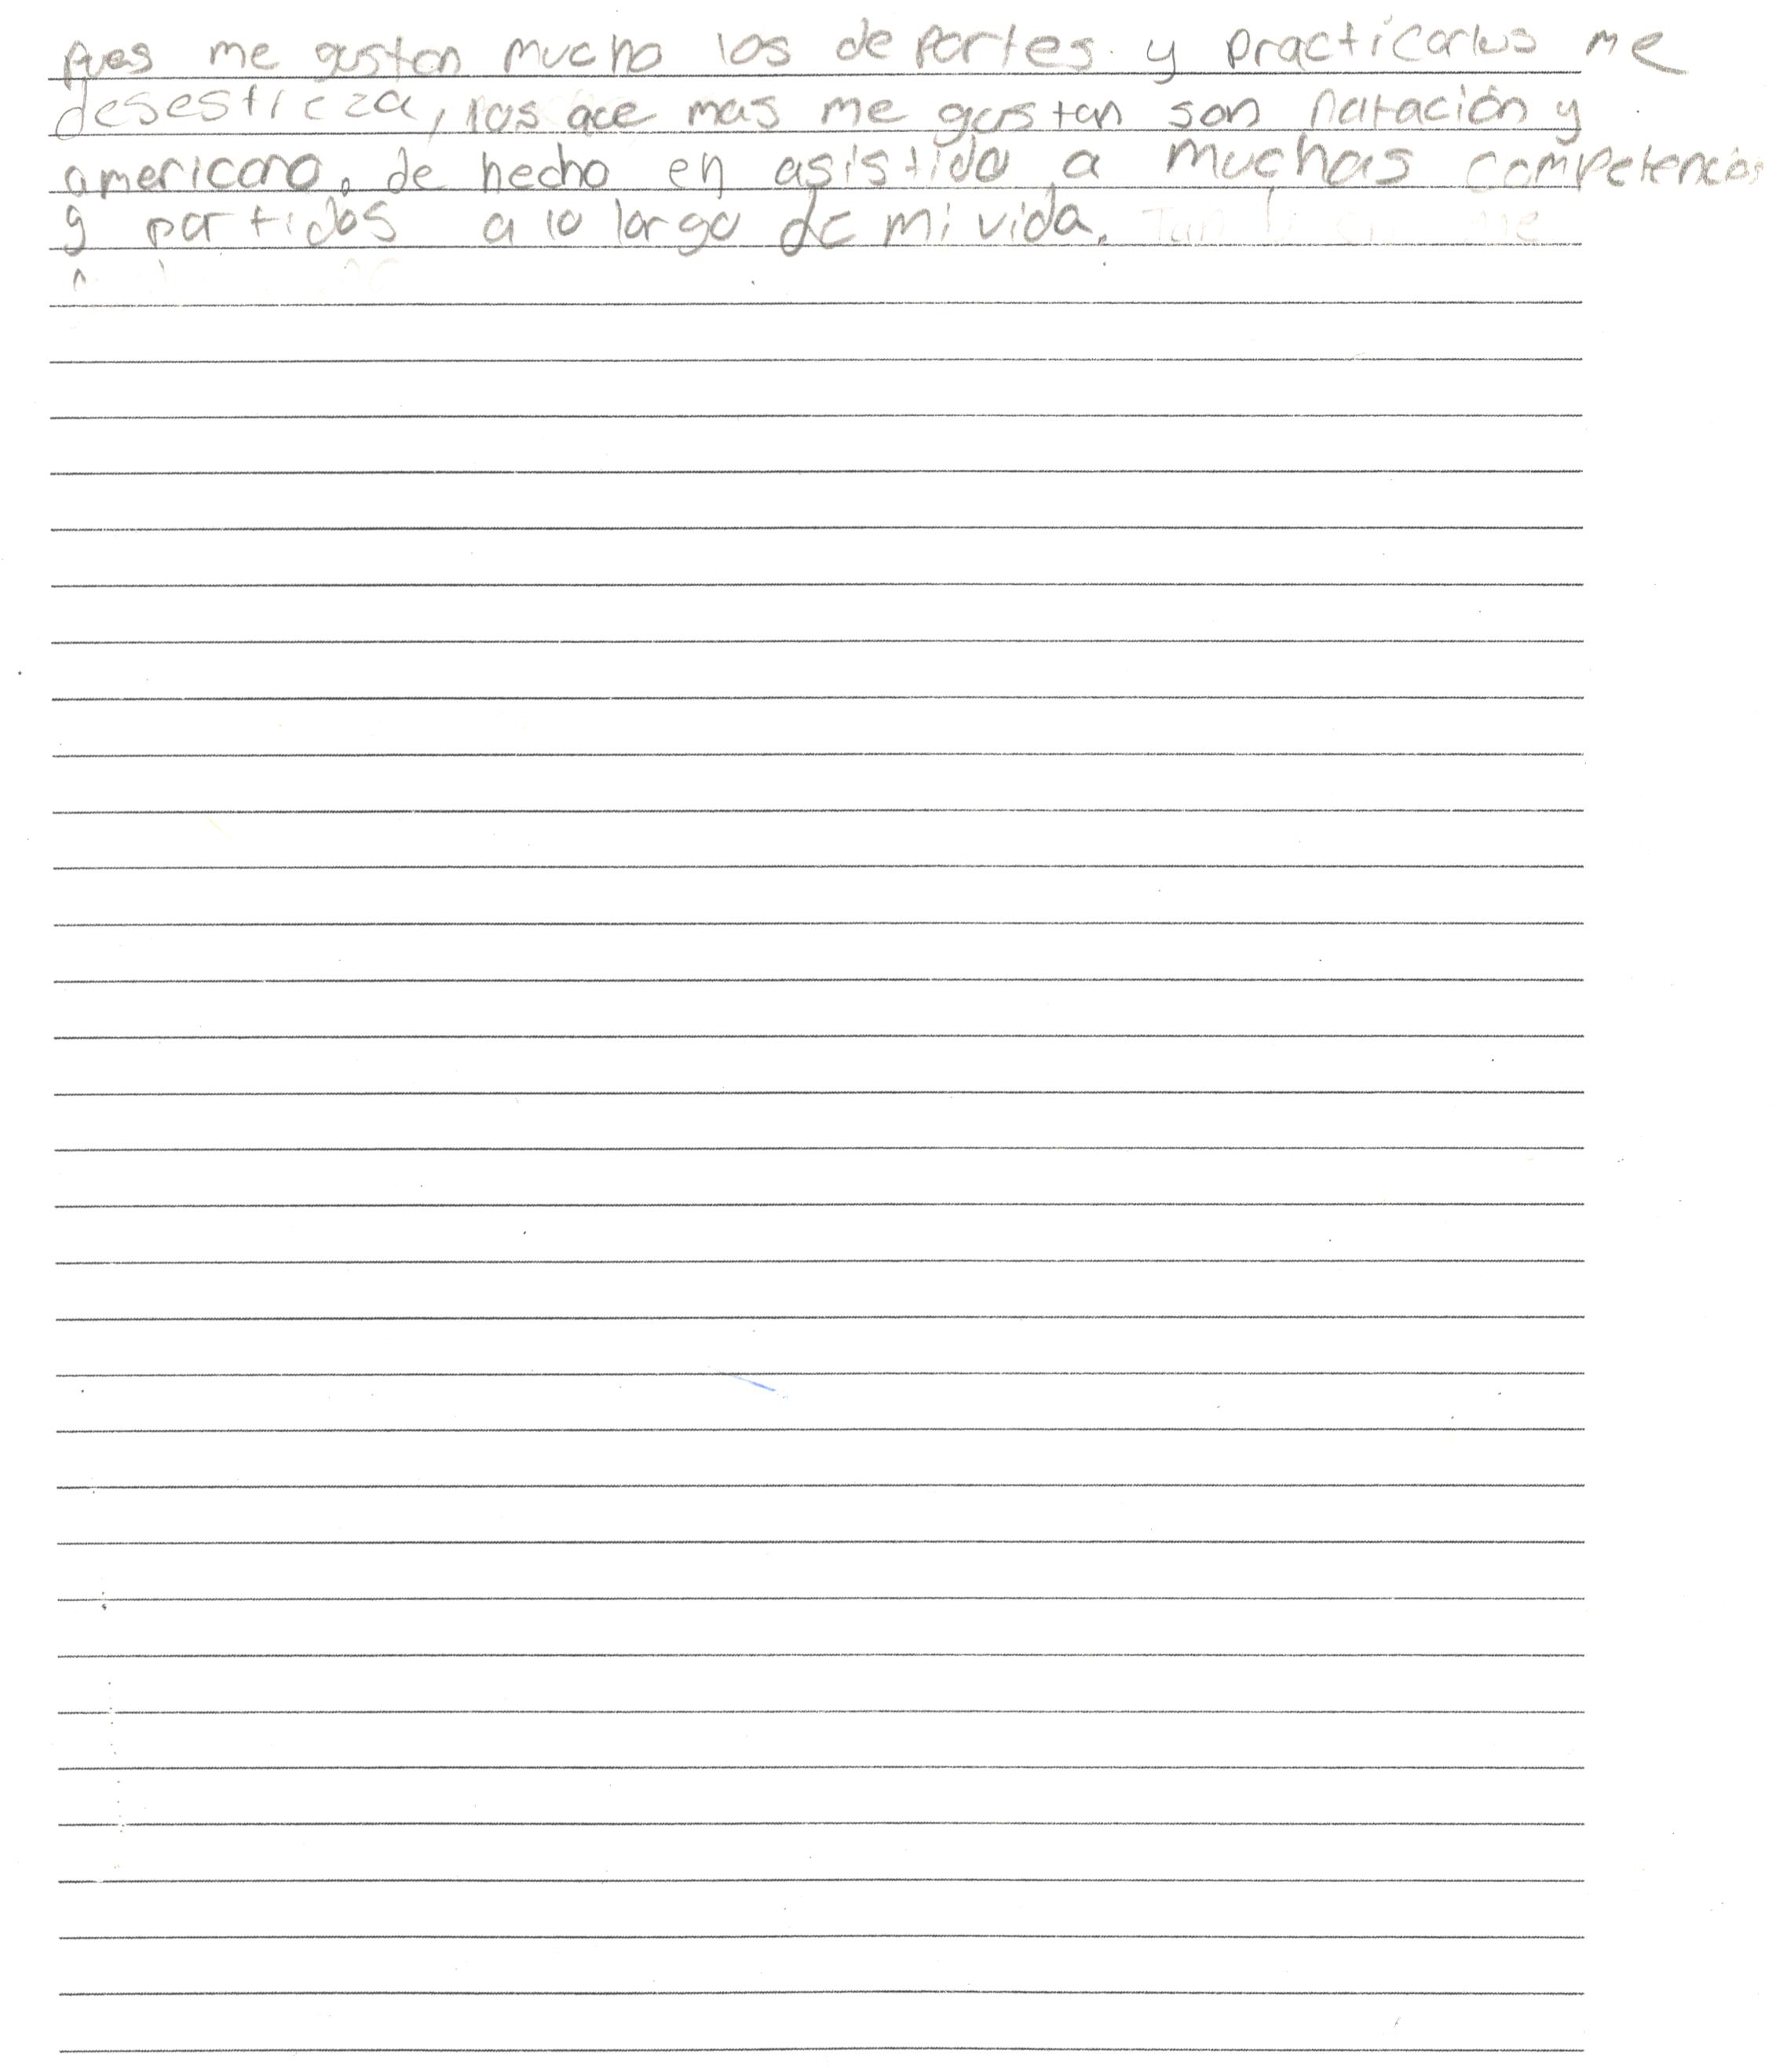 pues me gustan mucho los deportes y practicarlos me
desestreza, los que mas me gustan son natación y
americano. de hecho en asistido a muchas competencias
y partidos a lo largo de mi vida.